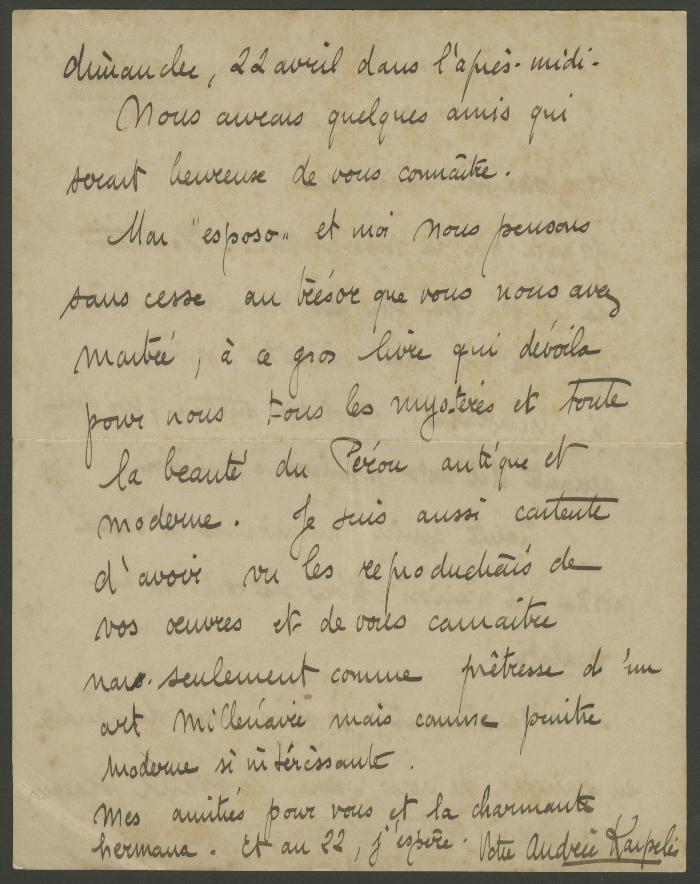 dimanche, 22 avril dans l'après-midi-
Nous aurons quelques amis qui
seront heureuse de vous connaître.
Mon "esposo" et moi nous pensons
sans cesse au trésor que vous nous avez
montré, à ce gros livre qui dévoila
pour nous tous les mystères et toute
la beauté du Pérou antique et
moderne. Je suis aussi contente
d'avoir vu les reproductions de
vos œuvres et de vous connaitre
non-seulement comme prêtresse d'un
art millénaire mais comme peintre
moderne si intéressante.
Mes amitiés pour vous et la charmante
hermana. Et au 22, j'espère. Votre Andrée Karpelès